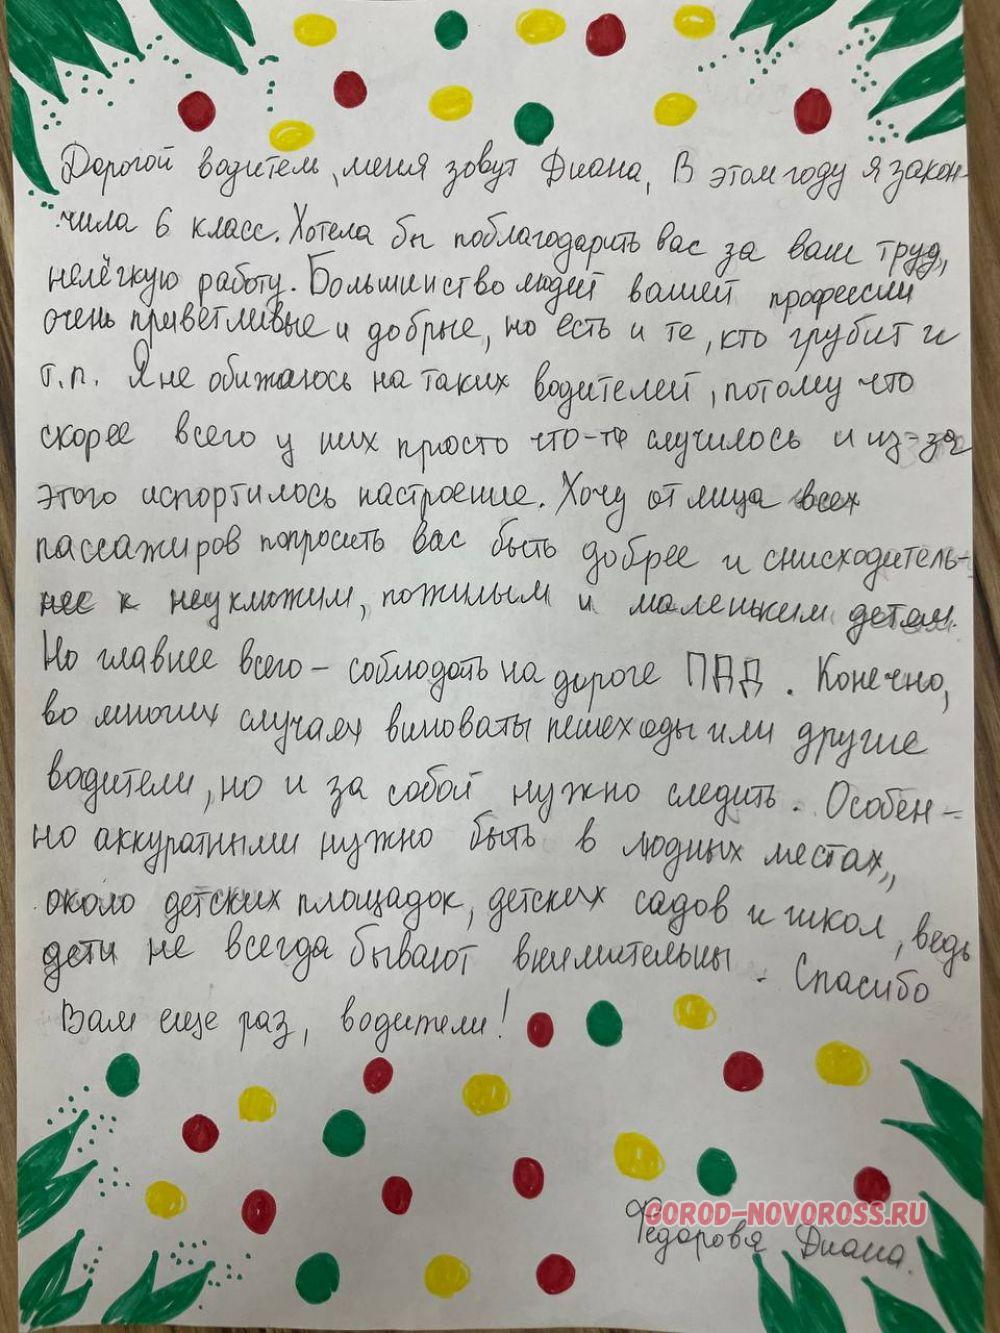 Дорогой водитель, меня зовут Диана, В этом году я закон-
чила 6 класс. Хотела бы поблагодарить вас за ваш труд,
нелёгкую работу. Большинство людей вашей профессии
очень приветливые и добрые, но есть и те, кто грубит и
т.п. Я не обижаюсь на таких водителей, потому что
скорее всего у них просто что-то случилось и из-за
этого испортилось настроение. Хочу от лица всех
пассажиров попросить вас быть добрее и снисходитель-
нее к неуклюжим, пожилым и маленьким детям.
Но главнее всего – соблюдать на дороге ПДД. Конечно,
во многих случаях виноваты пешеходы или другие
водители, но и за собой нужно следить. Особен-
но аккуратными нужно быть в людных местах,,
около детских площадок, детских садов и школ, ведь
дети не всегда бывают внимательны. Спасибо
Вам еще раз, водители!
GOROD-NOVOROSS.RU
Федорова Диана.